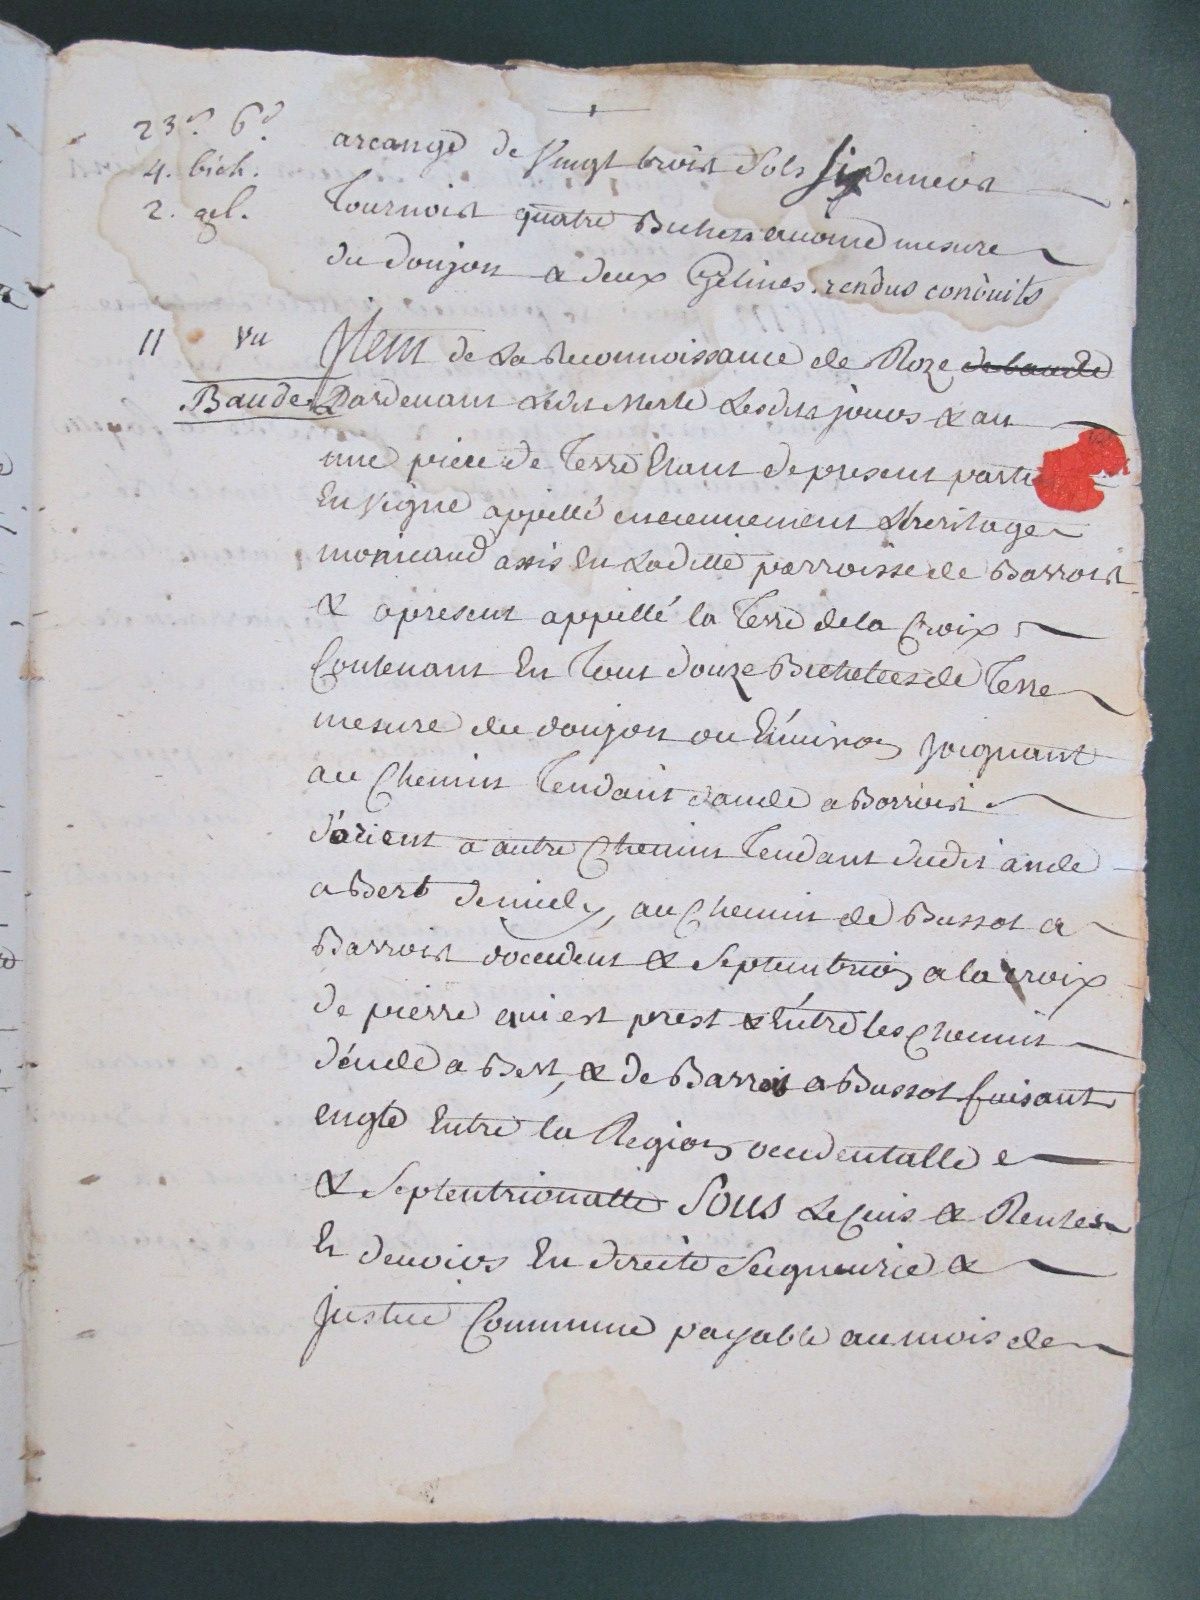 23s. 6d.
4. bich.
2. gel.
arcange de Vingt trois Sols Six deniers
Tournois quatre Bichets avoine mesure
du donjon & deux Gelines rendus conduits
11 Vu
Item de La Reconnoissance de Roze de baude
Baude Pardevant Ledit Merle Lesdits jours & an
une piece de Terre Etant de present partie
En Vigne appellé enciennement L'heritage
monicaud assis En Laditte parroisse de Barrois
& apresent appellé la Terre de la Croix
Contenant En Tout douze Bichetées de Terre
mesure du donjon ou Environ Joignant
au Chemin Tendant d'ande a Barrois
d'orient a autre Chemin Tendant dudit ande
a Bert de midy, au Chemin de Bussot a
Barrois occident & Septentrion a la croix
de pierre qui est prest & Entre les Chemins
d'ende a Bert, & de Barrois a Bussot faisant
engle Entre la Region occidentalle
& Septentrionalle Sous Le Cens & Rentes
Et devoirs En directe Seigneurie &
Justice Commune payable au mois de